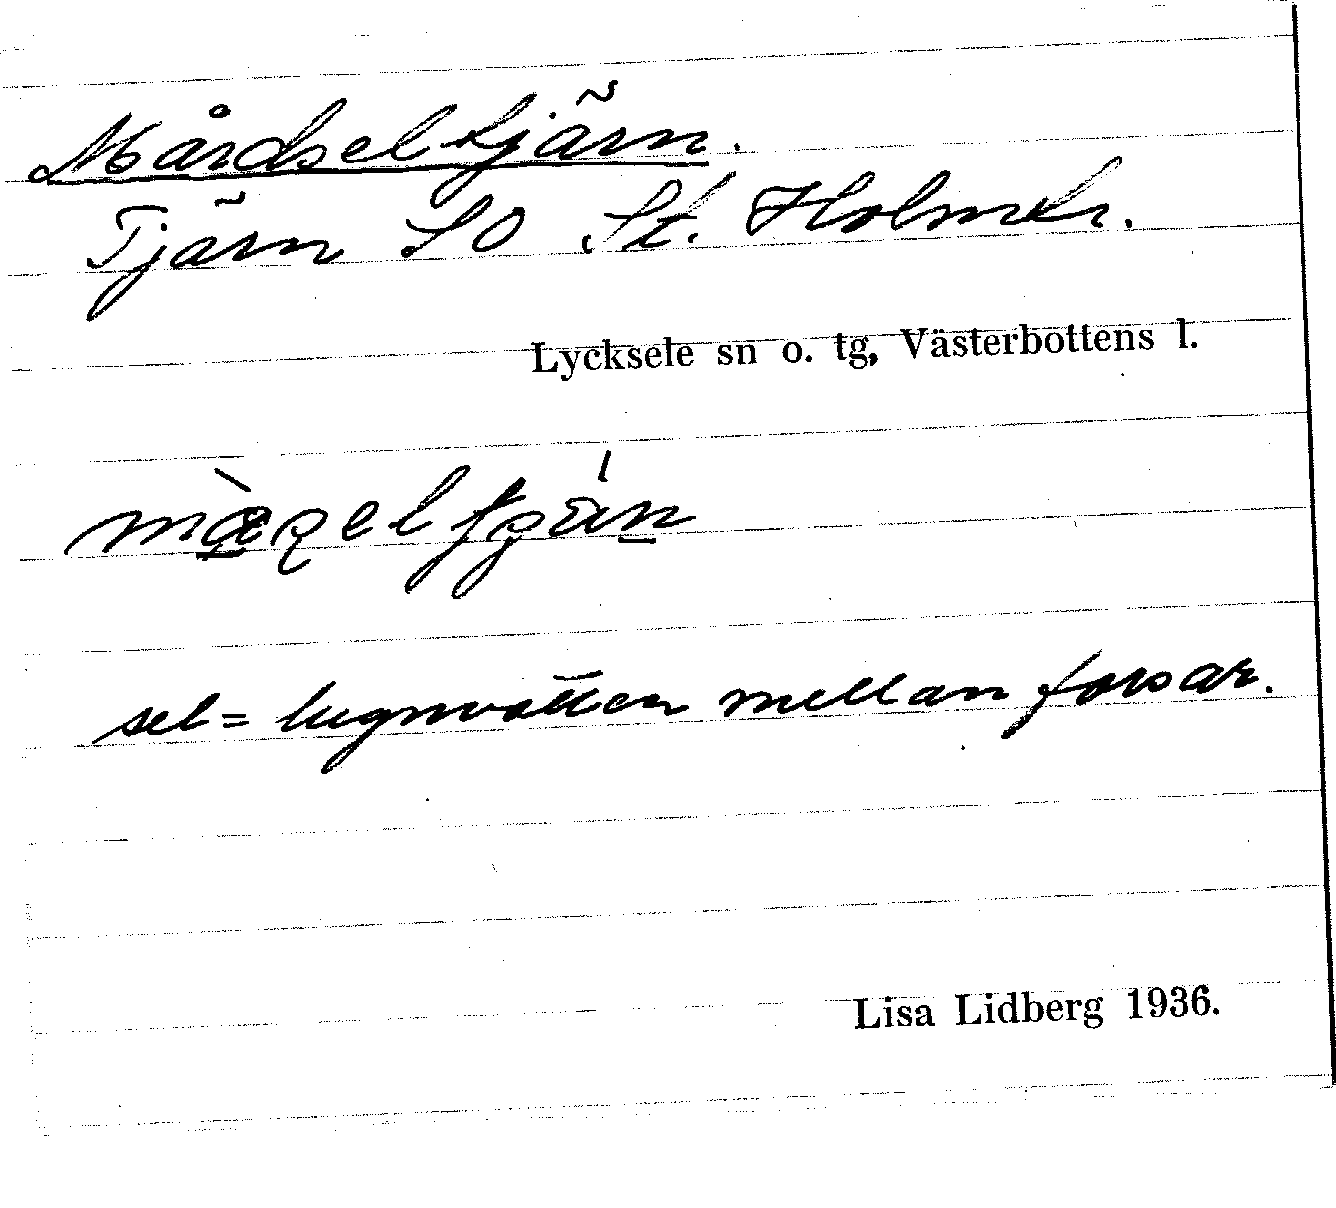 Mårdseltjärn.
Tjärn SO St. Holmtr.
Lycksele sn o. tg, Västerbottens l.
sel = lugnvatten mellan forsar.
Lisa Lidberg 1936.